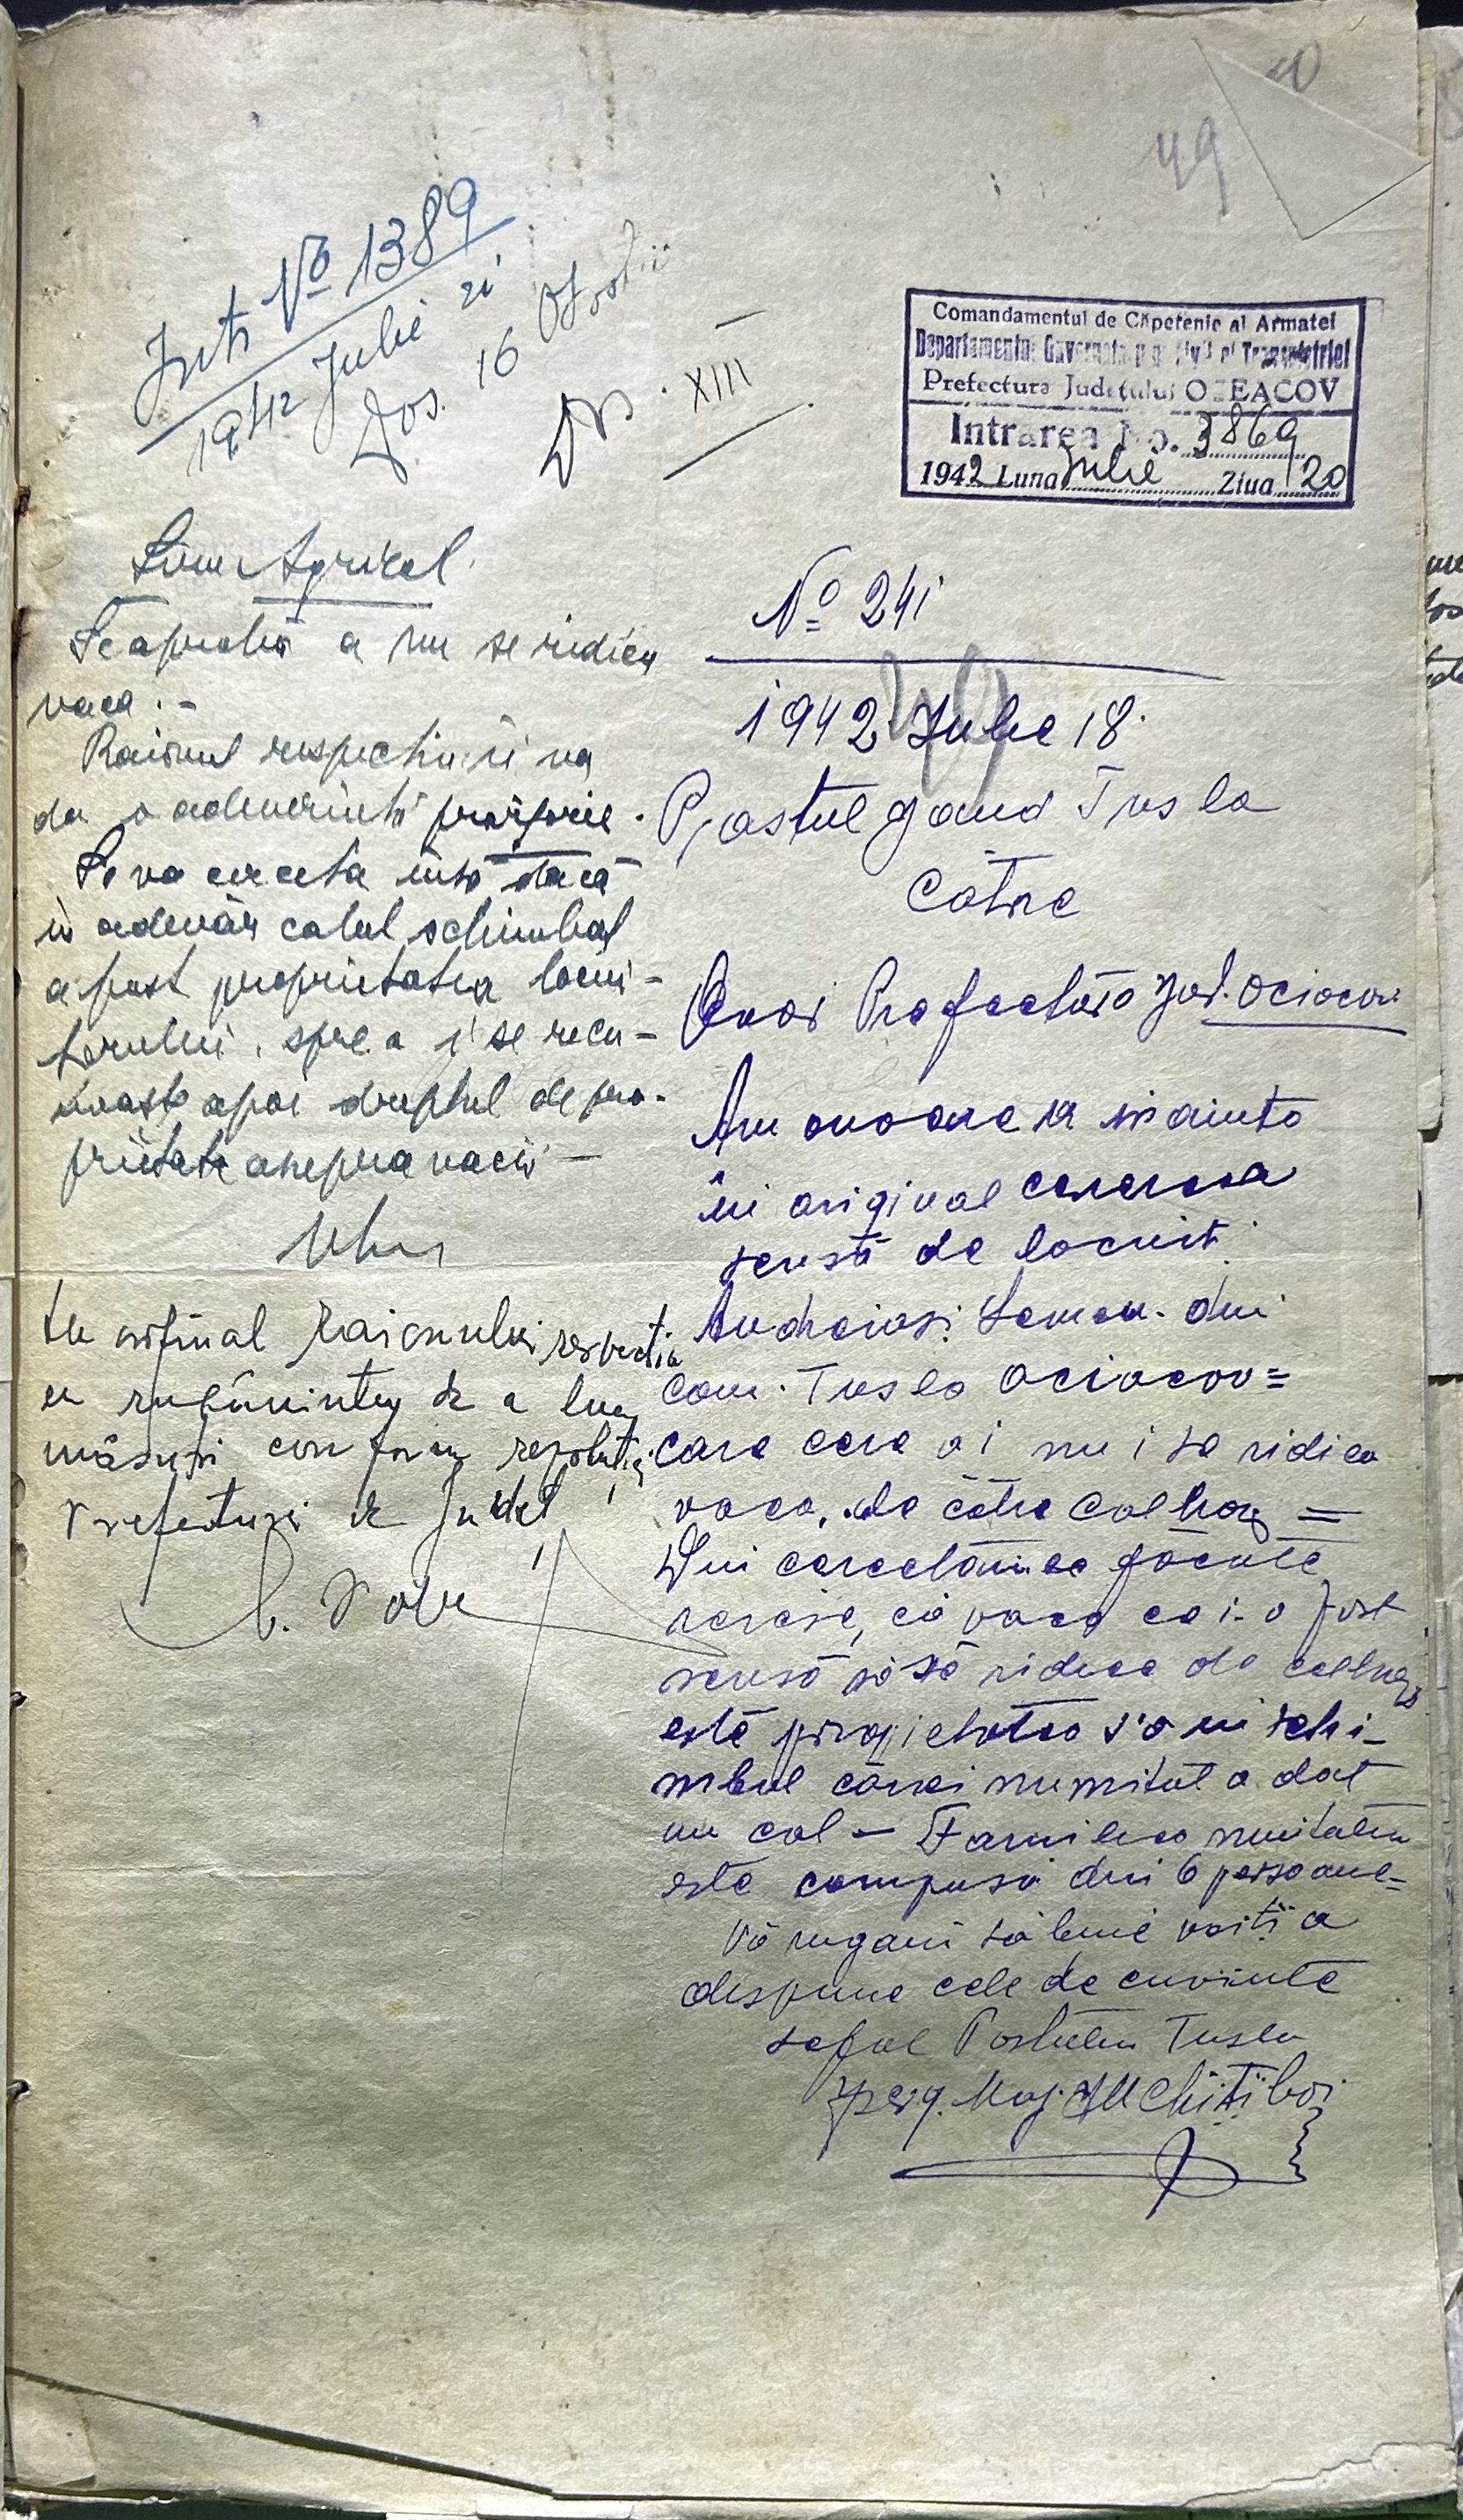 49
Intr. No 1389
1942 Iulie 21
Dos. 16
Ds. XIII
Comandamentul de Căpetenie al Armatei
Departamentul Guvernământul Civil al Transnistriei
Prefectura Județului OCEACOV
Intrarea No. 3869
1942 Luna Iulie Ziua 20
Serv. Agricol
Se aprobă a nu se ridica
vaca.-
Raionul respectiv îi va
da o adeverință
Se va cerceta însă dacă
în adevăr calul schimbat
a fost proprietatea locui-
torului, spre a i se recu-
noaște apoi dreptul de pro-
prietate asupra vacii -
În original Raionului respectiv
cu rugămintea de a lua
măsuri conform rezoluției
Prefecturii de Județ
No 241
1942 Iulie 18.
Postul Jand Tusla
Către
Onor Prefectura Jud. Oceacov
Am onoare a înainta
în original cererea
scrisă de locuit.
Andreiași Semen. din
com. Tusla Oceacov =
care cere a i nu i se ridica
vaca, de către Colhoz =
Din cercetările făcute
reiese, că vaca ce i-a fost
scrisă să să ridice de colhoz,
este propietatea s'a în schi-
mbul cărei numitul a dat
un cal - Familia numitului
este compusă din 6 persoane =
Vă rugăm să bine voiți a
dispune cele de cuviință
Șeful Postului Tusla